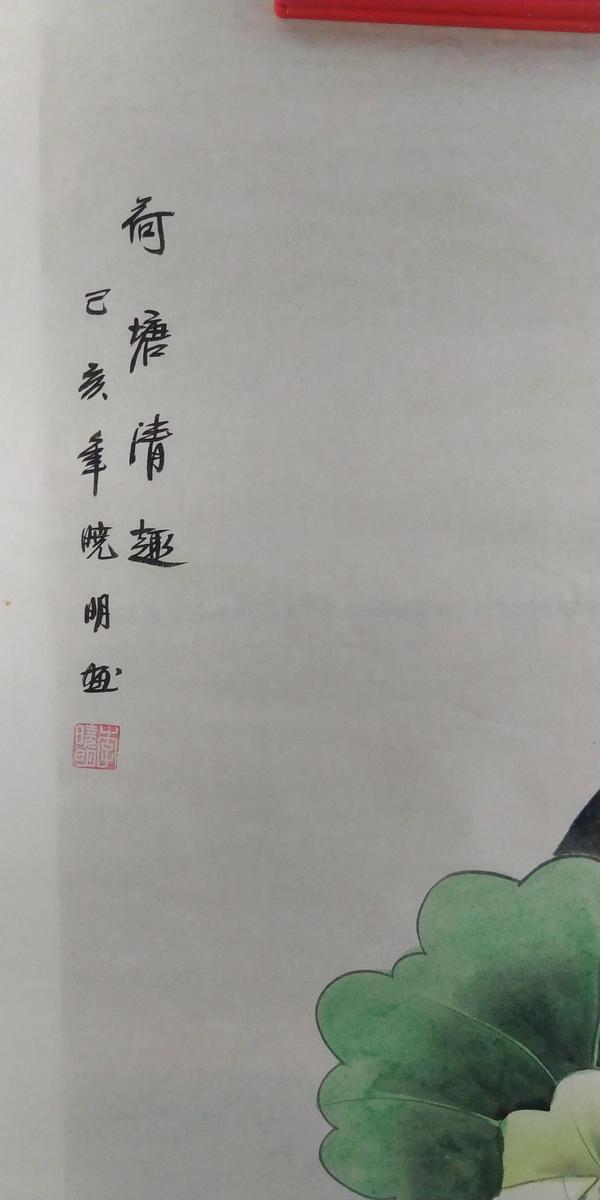 荷塘清趣
己亥年晓明画